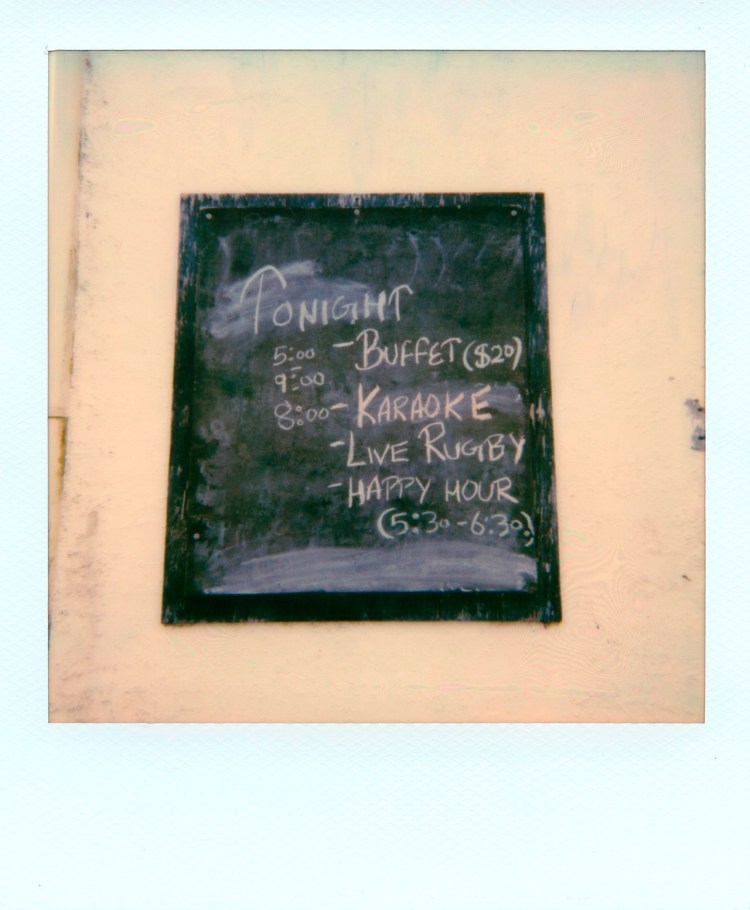 TONIGHT
5:00 - BUFFET ($20)
9:00
8:00 - KARAOKE
- LIVE RUGBY
- HAPPY HOUR
(5:30 - 6:30)